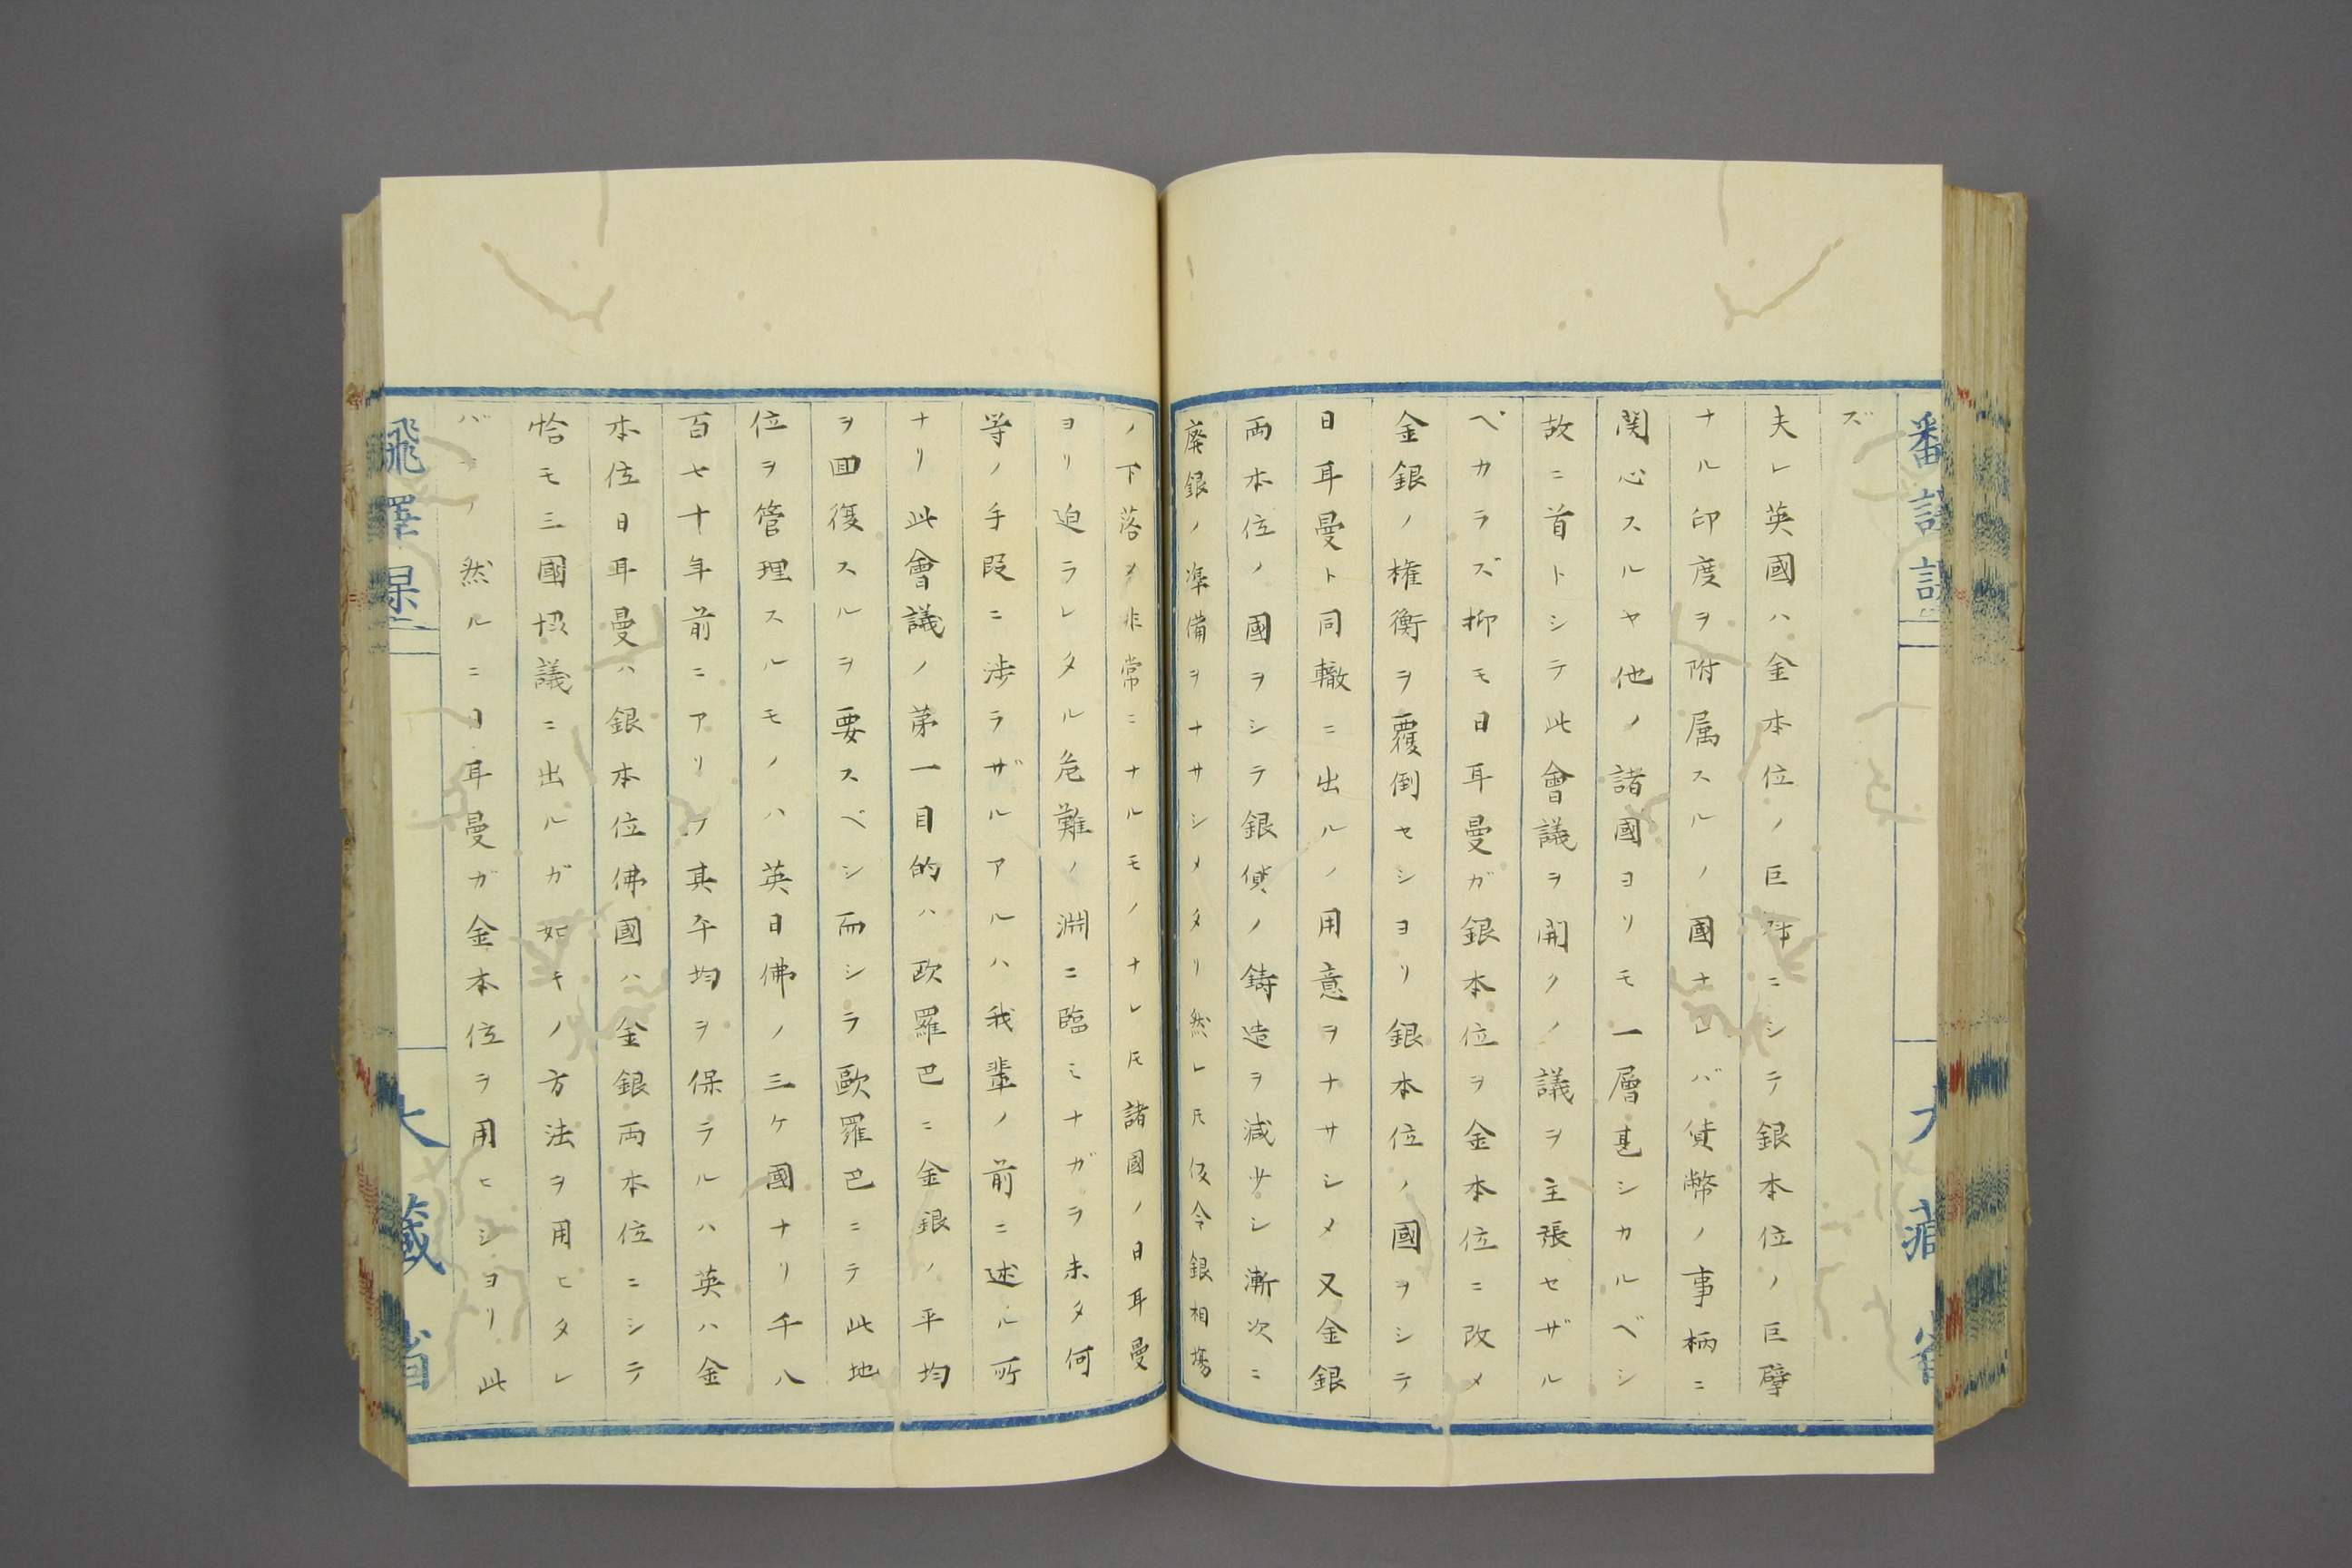 ズ
夫レ英國ハ金本位ノ巨擘ニシテ銀本位ノ巨擘
ナル印度ヲ附属スルノ國ナレバ貨幣ノ事柄ニ
関心スルヤ他ノ諸國ヨリモ一層甚シカルベシ
故ニ首トシテ此會議ヲ開クノ議ヲ主張セザル
ベカラズ抑モ日耳曼ガ銀本位ヲ金本位ニ改メ
金銀ノ権衡ヲ覆倒セシヨリ銀本位ノ國ヲシテ
日耳曼ト同轍ニ出ルノ用意ヲナサシメ又金銀
両本位ノ國ヲシテ銀貨ノ鋳造ヲ減サシ漸次ニ
廃銀ノ準備ヲナサシメタリ然レ𪜈仮令銀相場
ノ下落メ非常ニナルモノナレ𪜈諸國ノ日耳曼
ヨリ迫ラレタル危難ノ淵ニ臨ミナガラ未タ何
等ノ手段ニ渉ラザルアルハ我輩ノ前ニ述ル所
ナリ此會議ノ第一目的ハ欧羅巴ニ金銀ノ平均
ヲ回復スルヲ要スベシ而シテ歐羅巴ニテ此地
位ヲ管理スルモノハ英日佛ノ三ケ國ナリ千八
百七十年前ニアリテ其平均ヲ保テルハ英ハ金
本位日耳曼ハ銀本位佛國ハ金銀両本位ニシテ
恰モ三國協議ニ出ルガ如キノ方法ヲ用ヒタレ
バナリ然ルニ日耳曼ガ金本位ヲ用ヒシヨリ此
大藏省